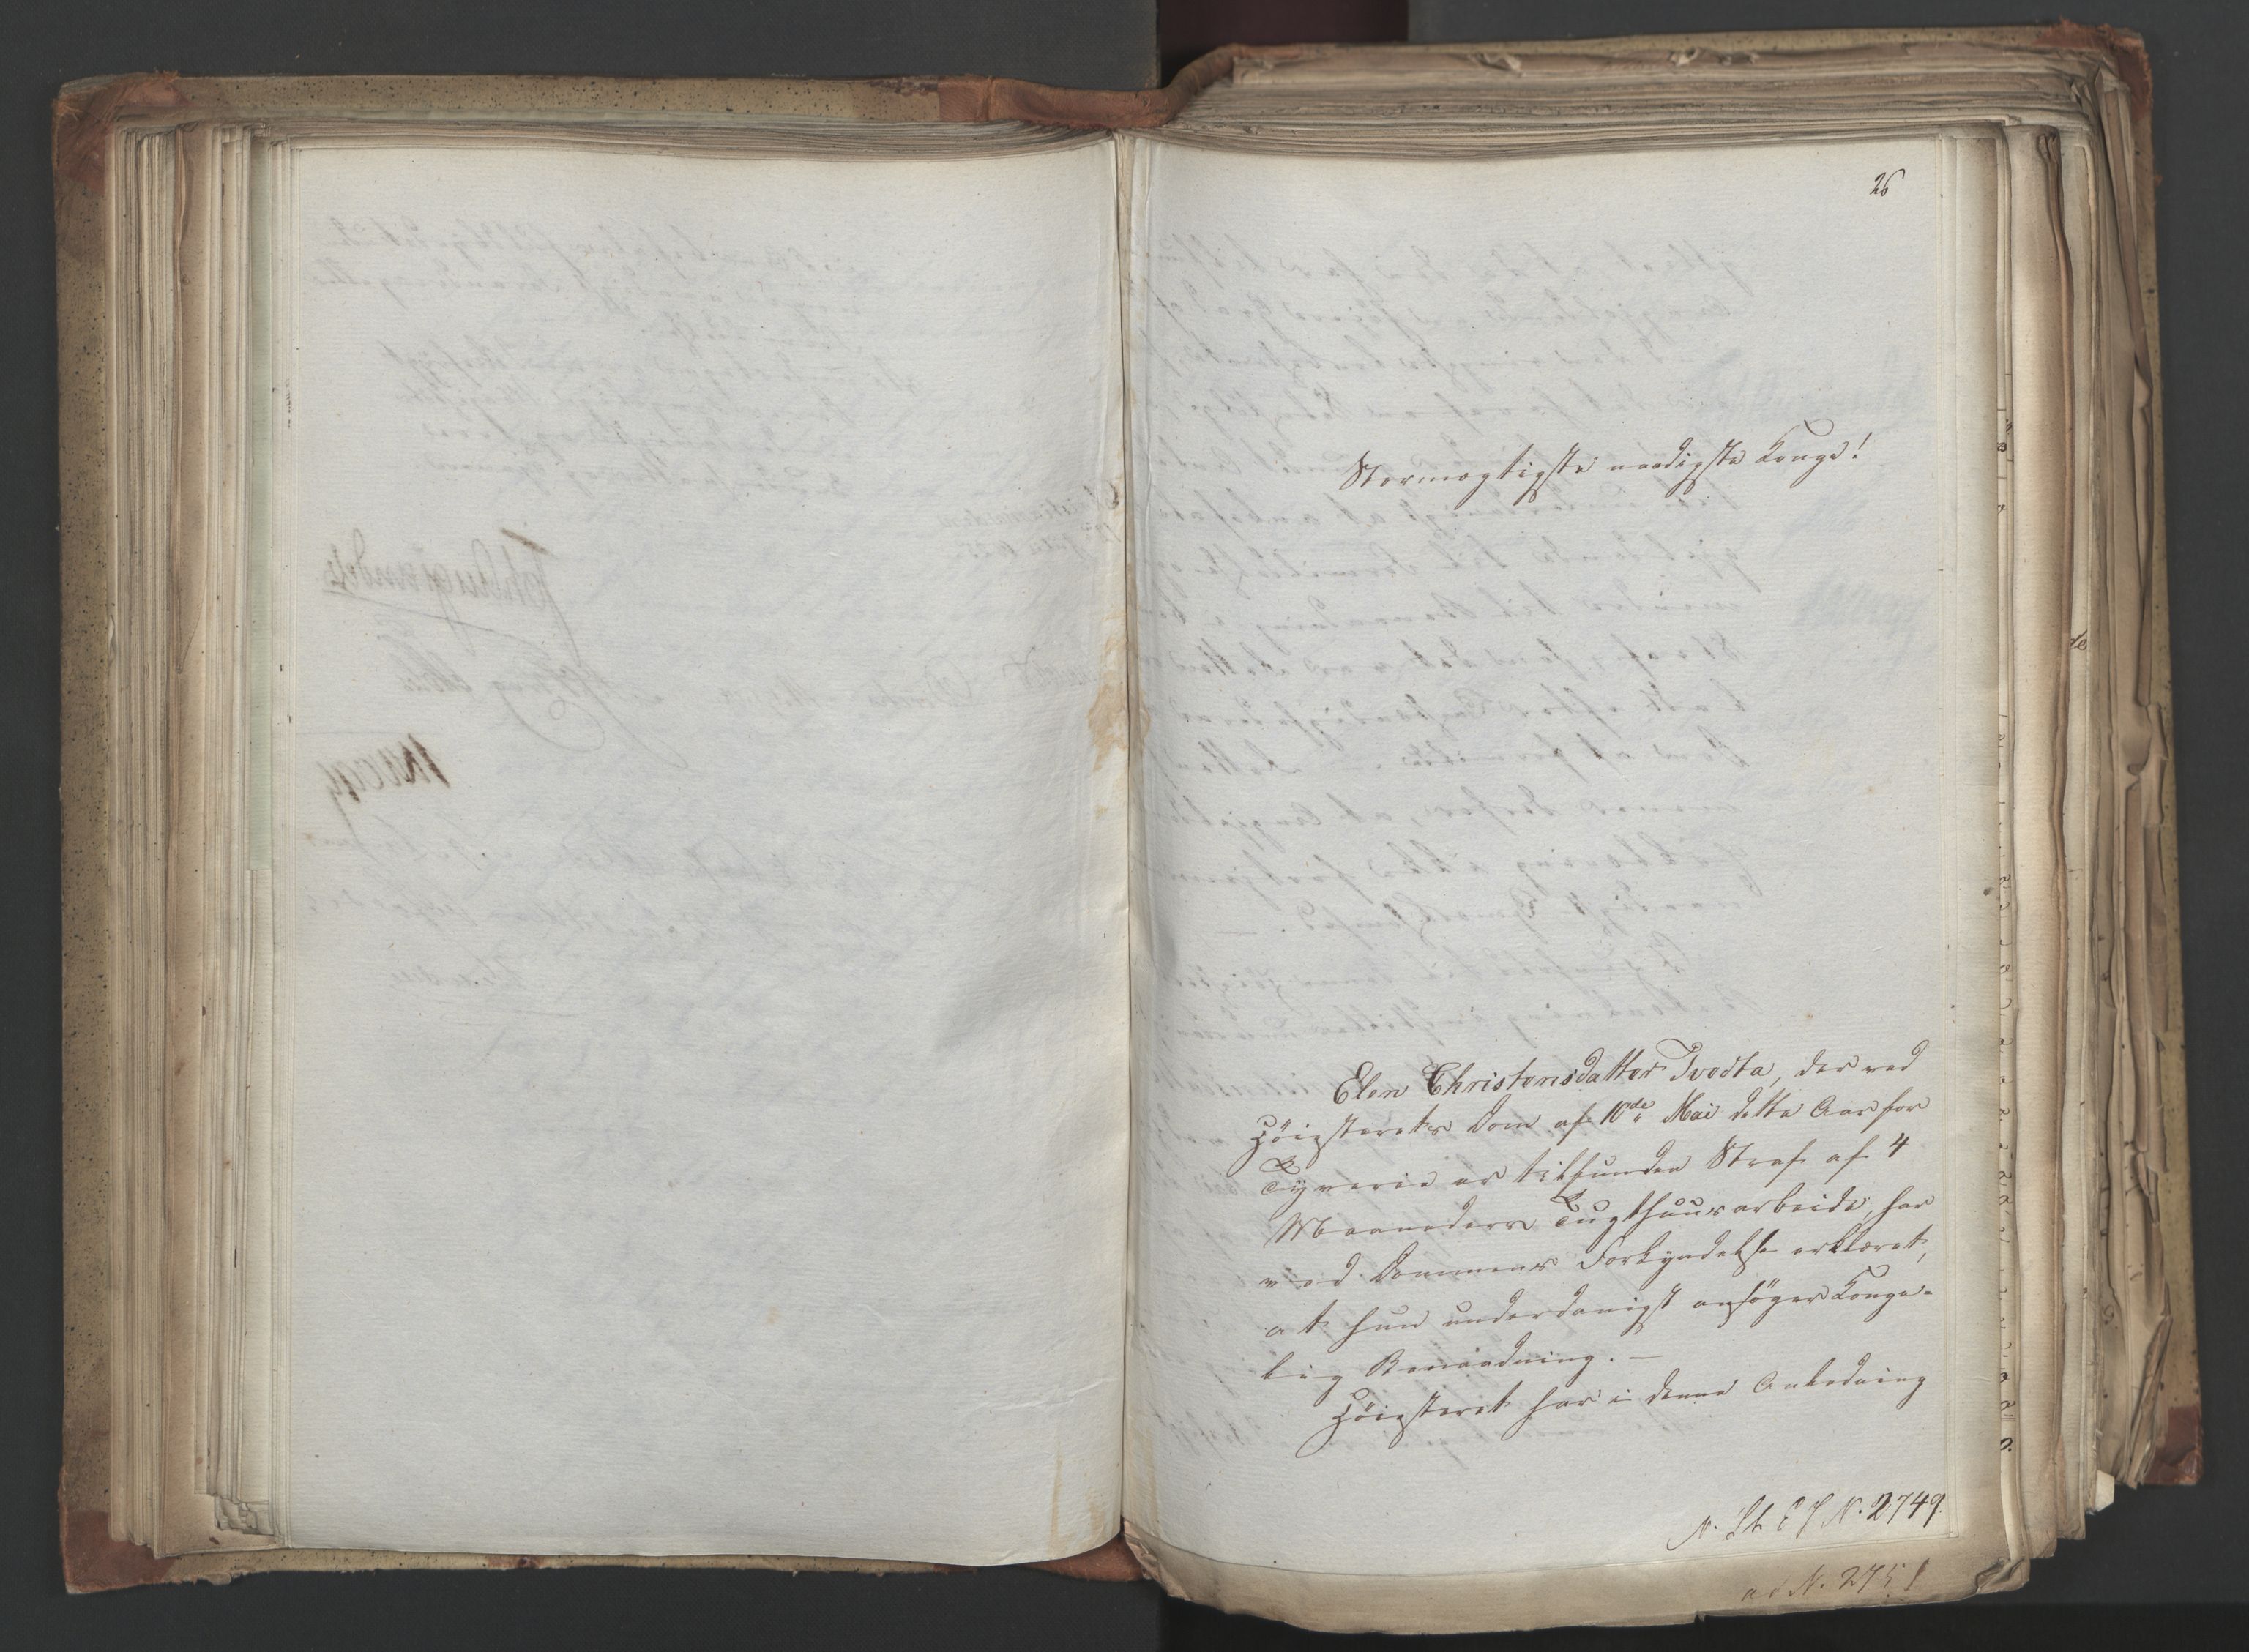 26
Stormægtigste naadigste Konge!
Elen Christensdatter Tvedta, der ved
Höiesterets Dom af 10de Mai dette Aar for
Tyverie er tilfunden Straf af 4
Maaneders Tugthuusarbeide, har
ved Dommens Forkyndelse erklæret,
at hun underdanigst ansöger Konge-
lig Benaadning. —
Höiesteret har i denne Anledning
N. 2749.
ad N. 2751